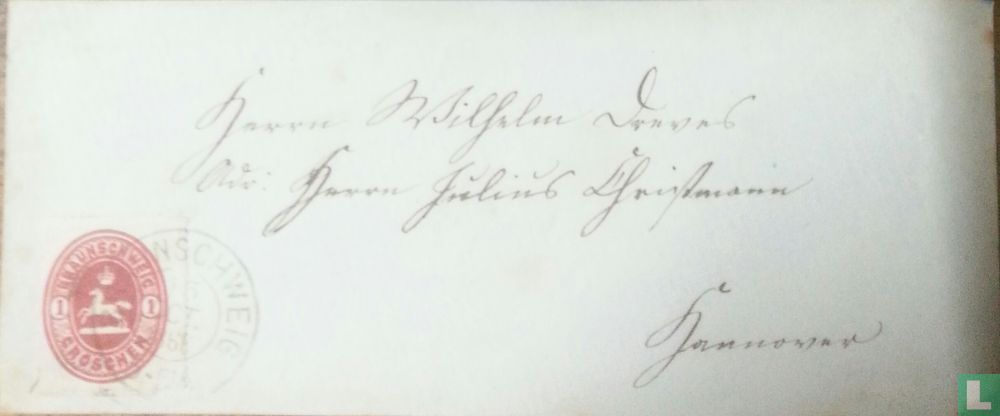 Herrn Wilhelm Dreves
Adr: Herrn Julius Christmann
Hannover
BRAUNSCHWEIG
1 1
GROSCHEN
BRAUNSCHWEIG
L